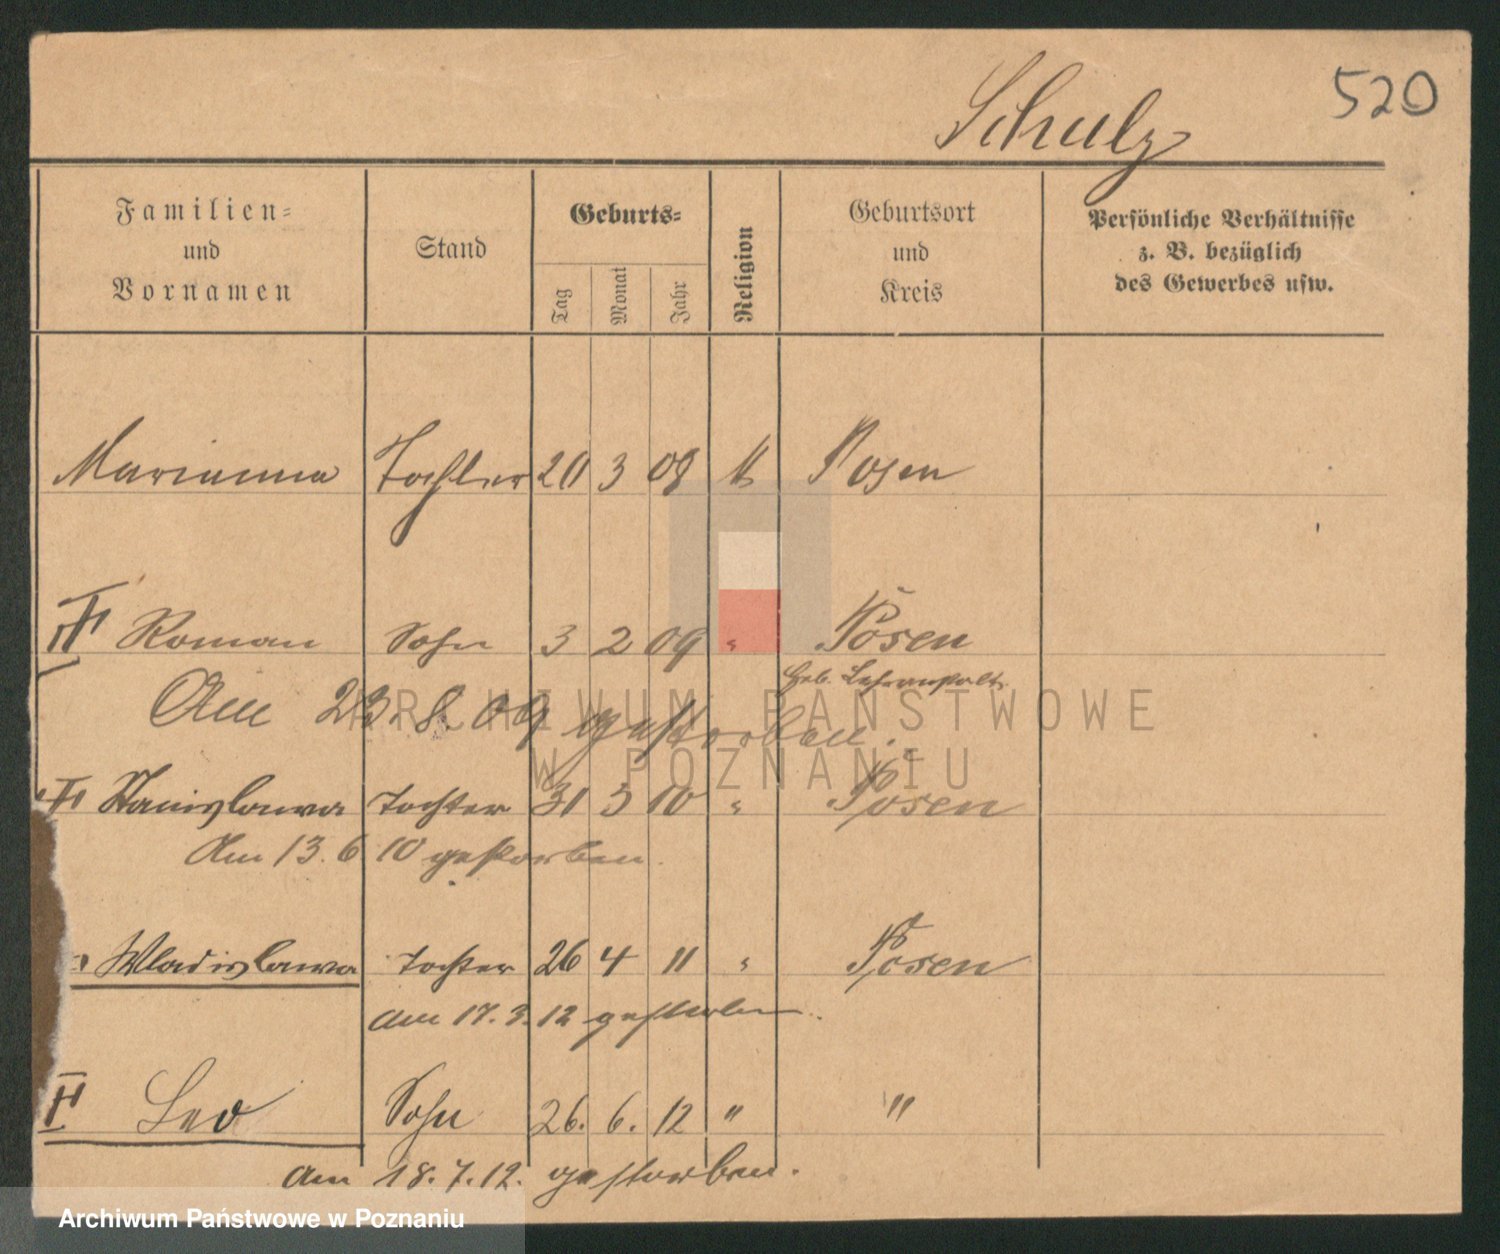 Schulz
520
Familien=
und
Vornamen
Stand
Geburts=
Tag
Monat
Jahr
Religion
Geburtsort
und
Kreis
Persönliche Verhältnisse
z. B. bezüglich
des Gewerbes usw.
Marianna Tochter 20 3 08 k Posen
Roman Sohn 3 2 09 " Posen
Geb. Lehranstalt
Am 23. 8. 09 gestorben.
Stanislawa Tochter 31 5 10 " Posen
Am 13. 6 10 gestorben.
Wladislawa Tochter 26 4 11 " Posen
am 17. 3. 12 gestorben.
Leo Sohn 26. 6. 12 " "
am 18. 7. 12. gestorben.
ARCHIWUM PAŃSTWOWE
W POZNANIU
Archiwum Państwowe w Poznaniu